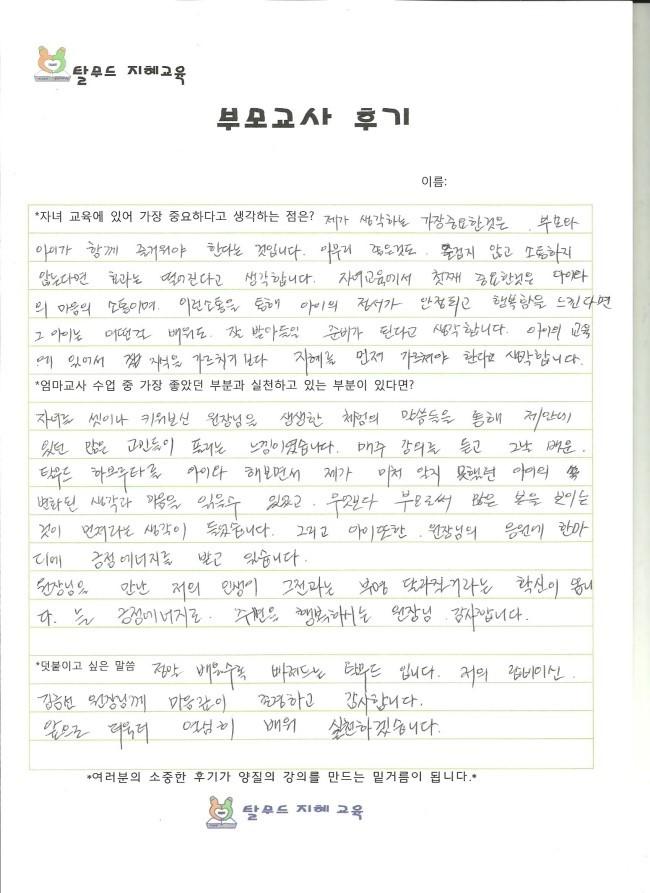 탈무드 지혜교육
부모교사 후기
이름:
*자녀 교육에 있어 가장 중요하다고 생각하는 점은? 제가 생각하는 가장중요한것은 . 부모와
아이가 함께 즐거워야 한다는 것입니다. 아무리 좋은것도 . 즐겁지 않고 소통하지
않는다면 효과는 떨어진다고 생각합니다. 자녀교육에서 첫째 중요한것은 아이와
의 마음의 소통이며. 이런소통을 통해 아이의 정서가 안정되고 행복함을 느낀다면
그 아이는 어떤걸 배워도. 잘 받아들일 준비가 된다고 생각합니다. 아이의 교육
에 있어서 지식을 가르치기 보다 지혜를 먼저 가르쳐야 한다고 생각합니다.
*엄마교사 수업 중 가장 좋았던 부분과 실천하고 있는 부분이 있다면?
자녀를 셋이나 키워보신 원장님의 생생한 체험의 말씀들을 통해 제안에
있던 많은 고민들이 풀리는 느낌이였습니다. 매주 강의를 듣고 그날 배운.
탈무드 하브루타를 아이와 해보면서 제가 미처 알지 못했던 아이의
변화된 생각과 마음을 읽을수 있었고. 무엇보다 부모로써 많은 본을 보이는
것이 먼저라는 생각이 들었습니다. 그리고 아이또한 . 원장님의 응원에 한마
디에 긍정에너지를 받고 있습니다.
원장님을 만난 저의 인생이 그전과는 분명 달라질거라는 확신이 옵니
다. 늘 긍정에너지로. 주변을 행복하시는 원장님. 감사합니다.
*덧붙이고 싶은 말씀 점점 배울수록 빠져드는 탈무드 입니다. 저의 랍비이신.
김금선 원장님께 마음깊이 존경하고 감사합니다.
앞으로 더욱더 열심히 배워 실천하겠습니다.
*여러분의 소중한 후기가 양질의 강의를 만드는 밑거름이 됩니다.*
탈무드 지혜 교육